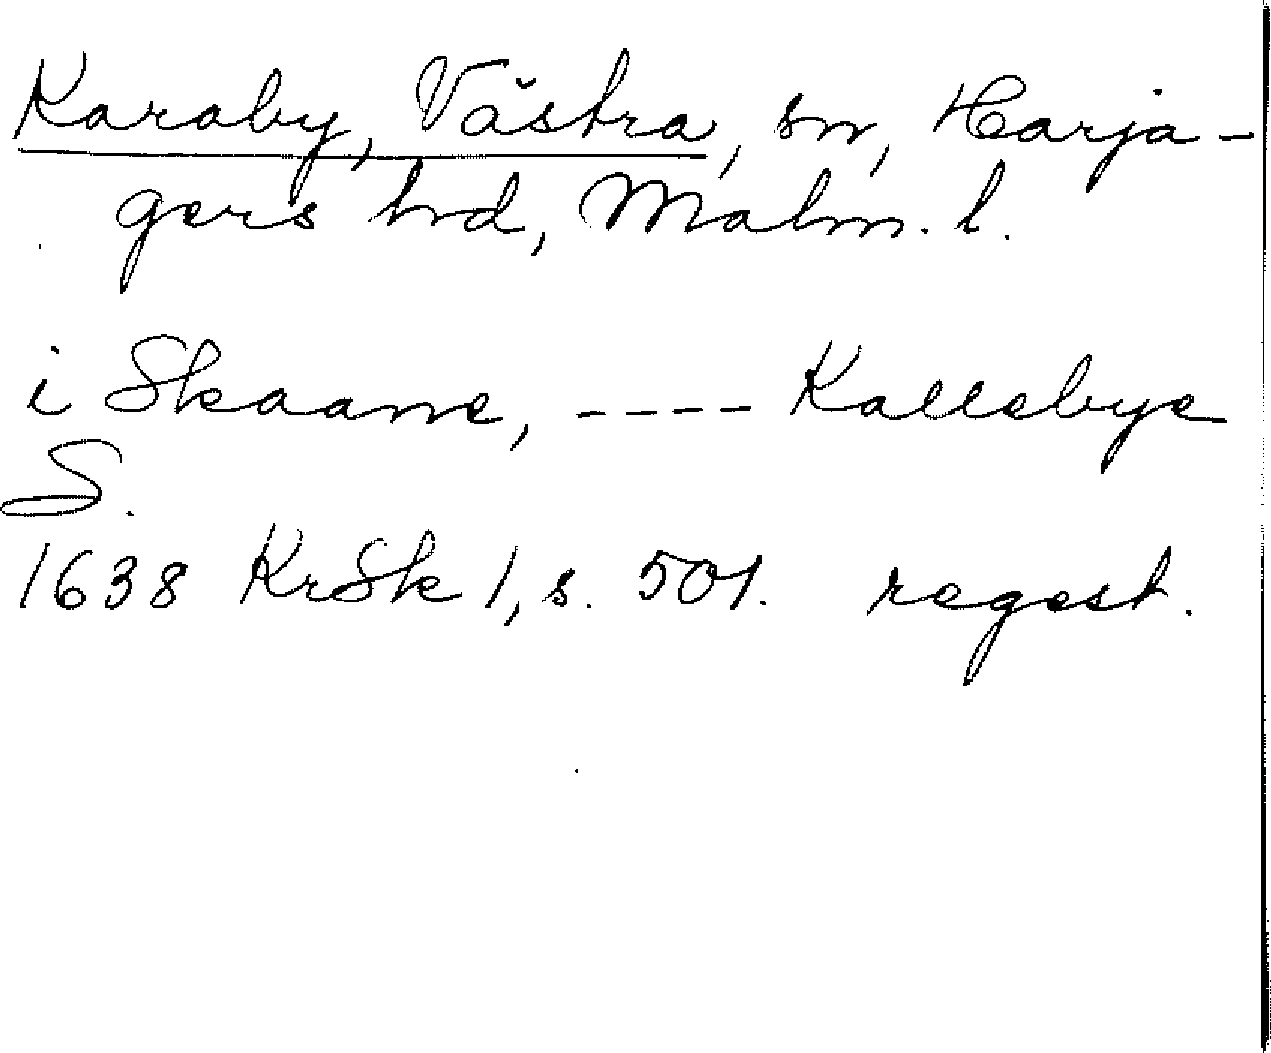 Karaby, Västra, sn, Harja-
gers hrd, Malm. l.
i Skaane, ---- Kallebye
S.
1638 KrSk 1, s. 501. regest.